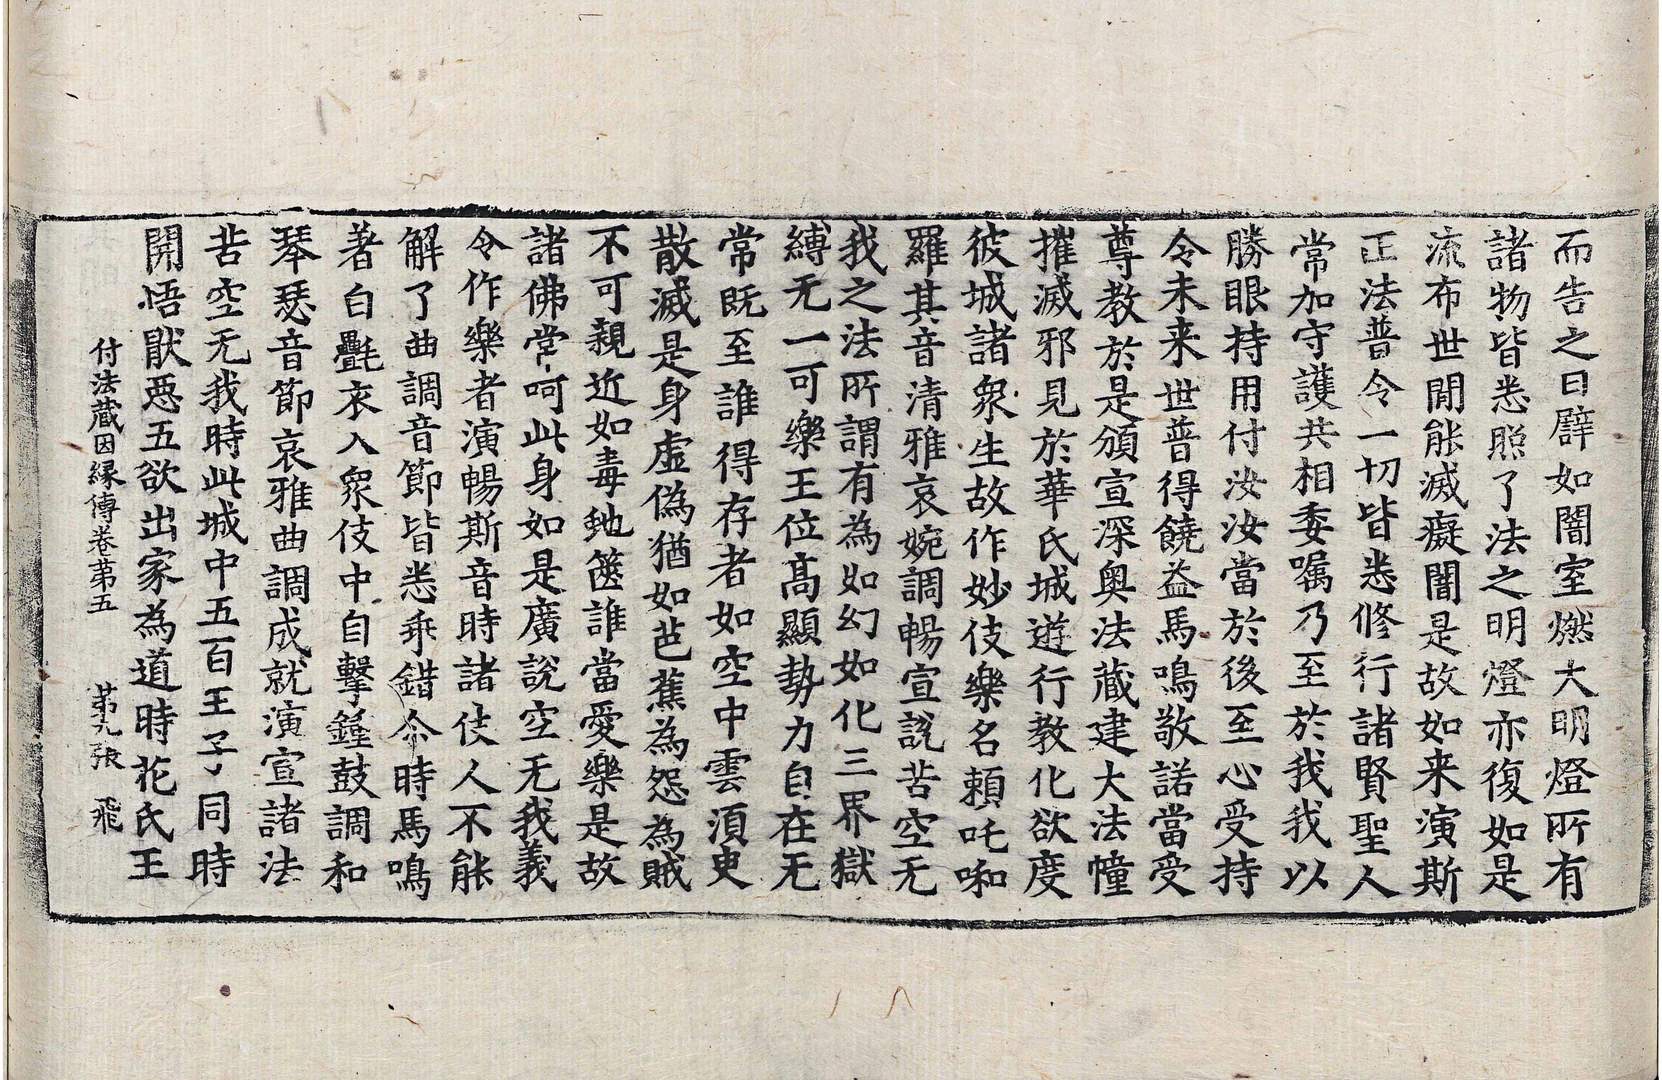 而告之曰辟如闇室燃大明燈所有
諸物皆悉照了法之明燈亦復如是
流布世閒能滅癡闇是故如来演斯
正法普令一切皆悉修行諸賢聖人
常加守護共相委嘱乃至於我我以
勝眼持用付汝汝當於後至心受持
令未来世普得饒益馬鳴敬諾當受
尊教於是頒宣深奥法藏建大法幢
摧滅邪見於華氏城遊行教化欲度
彼城諸衆生故作妙伎樂名頼吒啝
羅其音清雅哀婉調暢宣説苦空无
我之法所謂有為如幻如化三界獄
縛无一可樂王位髙顯勢力自在无
常既至誰得存者如空中雲湏臾
散滅是身虚偽猶如芭蕉為怨為賊
不可親近如毒虵篋誰當愛樂是故
諸佛常呵此身如是廣説空无我義
令作樂者演暢斯音時諸伎人不能
解了曲調音節皆悉乖錯尒時馬鳴
著白㲲衣入衆伎中自擊鍾鼓調和
琴瑟音節哀雅曲調成就演宣諸法
苦空无我時此城中五百王子同時
開悟猒惡五欲出家為道時花氏王
付法藏因縁傳卷苐五 苐九張 飛